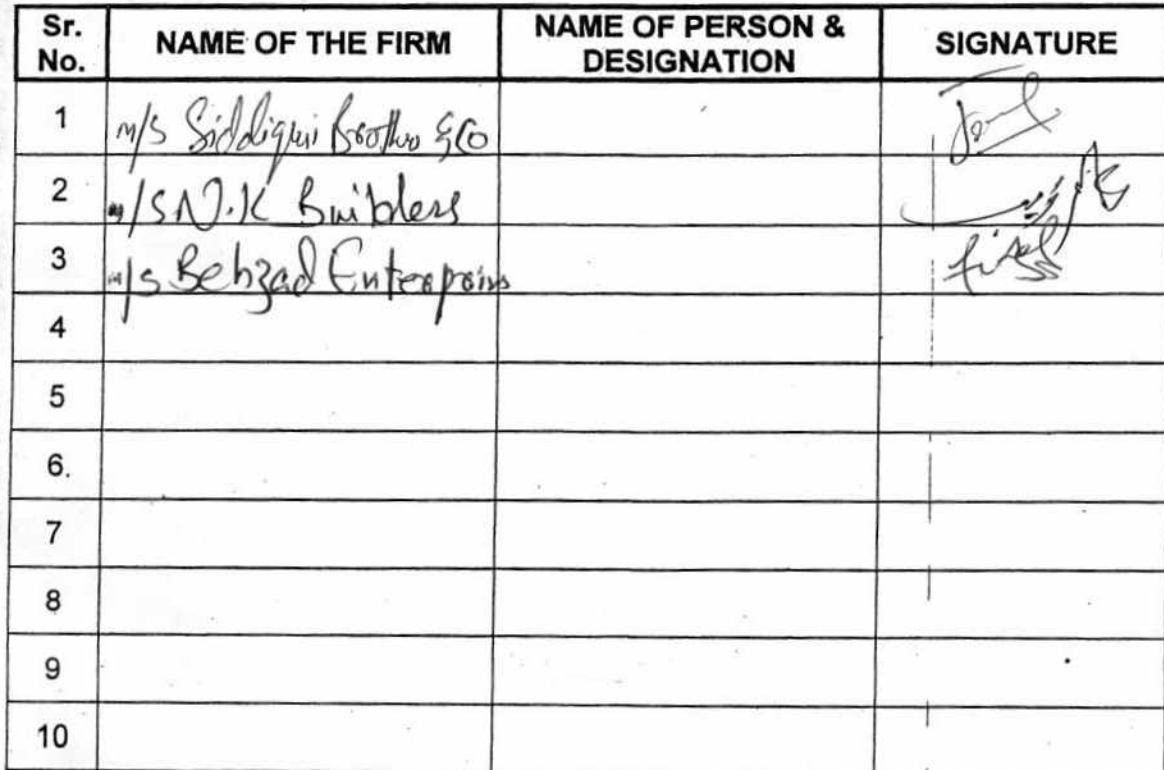 Sr. No. NAME OF THE FIRM NAME OF PERSON & DESIGNATION SIGNATURE
1 m/s Siddiqui Brother & Co
2 m/s N.K Builders
3 m/s Behzad Enterprises
4
5
6.
7
8
9
10